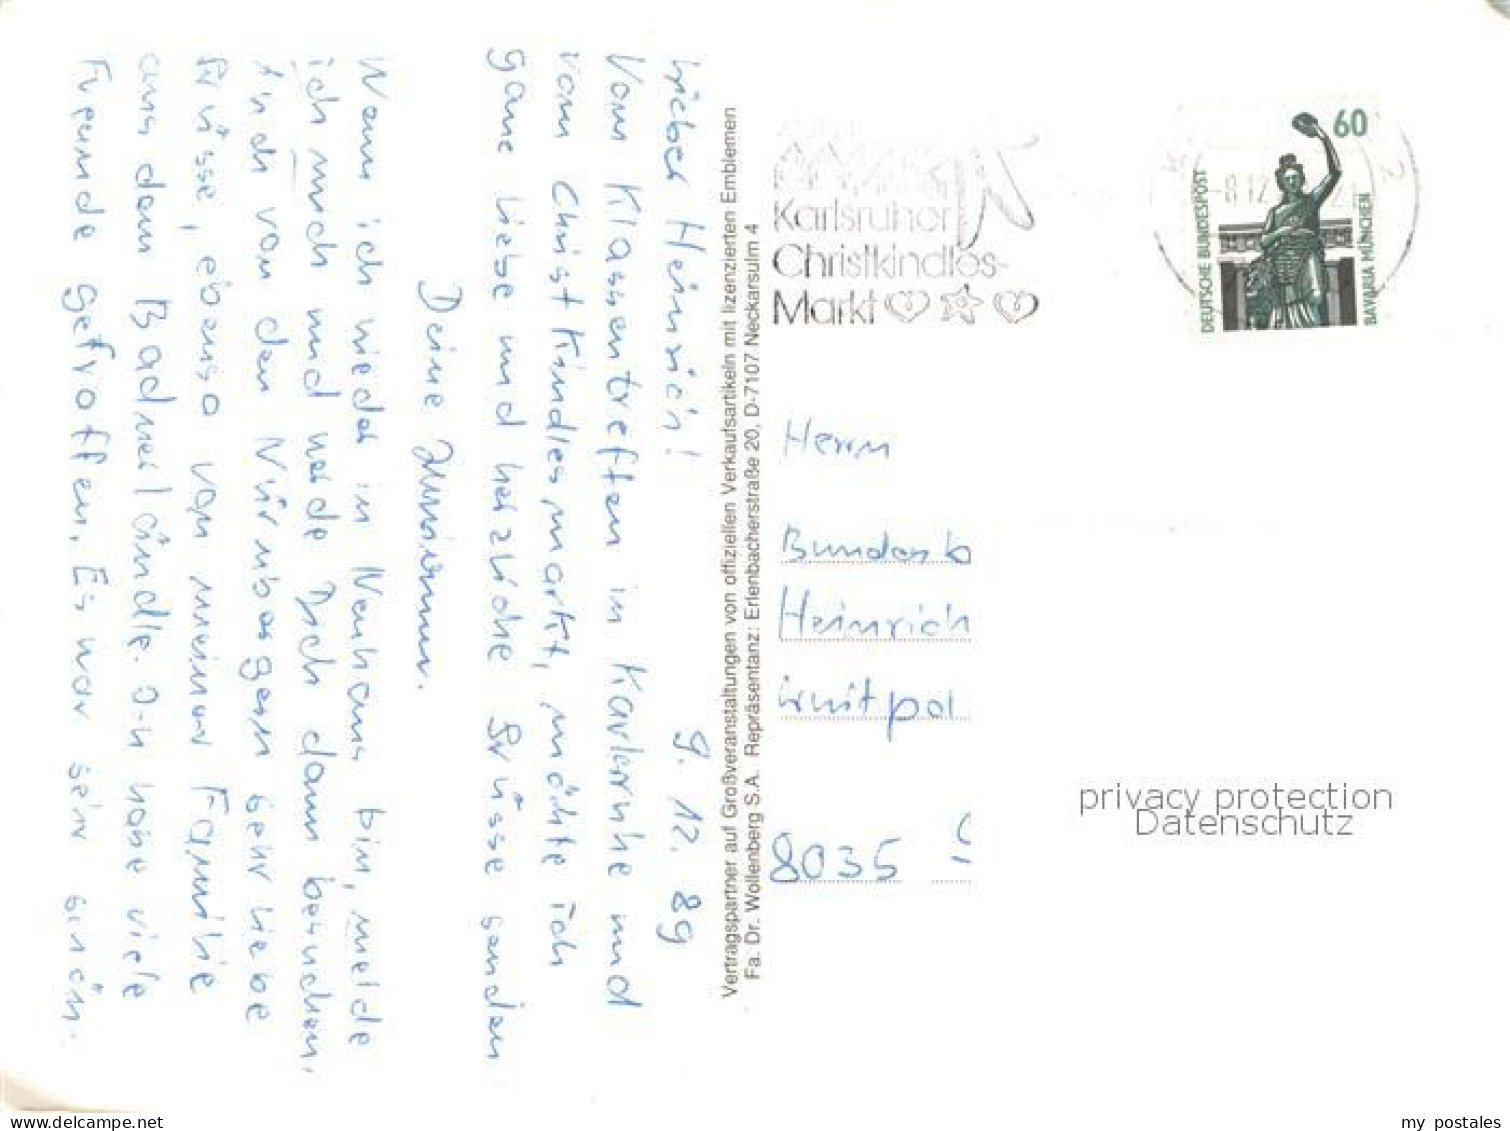 9. 12. 89
Lieber Heinrich!
Vom Klassentreffen in Karlsruhe und
vom Christkindlesmarkt, möchte ich
ganz liebe und herzliche Grüsse senden
Deine
Wenn ich wieder in Neuhaus bin, melde
ich mich und werde Dich dann besuchen.
Auch von den Nürnbergern sehr liebe
Grüsse, ebenso von meiner Familie
aus dem Badnerländle. Ich habe viele
Freunde getroffen. Es war sehr schön.
Vertragspartner auf Großveranstaltungen von offiziellen Verkaufsartikeln mit lizenzierten Emblemen
Fa. Dr. Wollenberg S.A. Repräsentanz: Erlenbacherstraße 20, D-7107 Neckarsulm 4
Karlsruher
Christkindles-
Markt
-8.12
2
60
DEUTSCHE BUNDESPOST
BAVARIA MÜNCHEN
Herrn
Heinrich
8035
privacy protection
Datenschutz
www.delcampe.net
my_postales